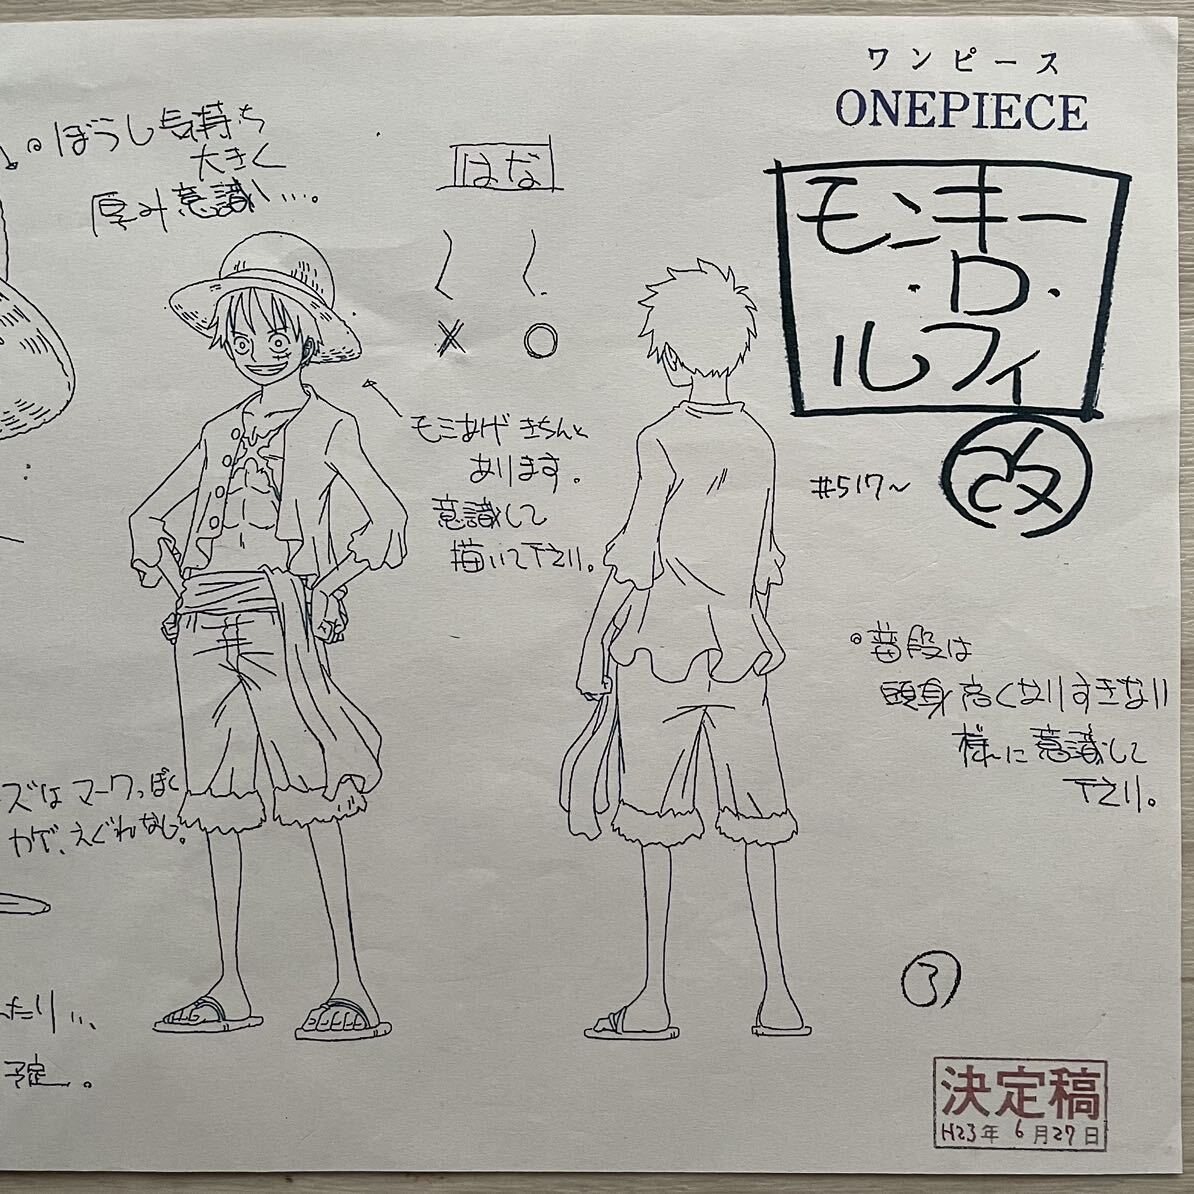 ワンピース
ONEPIECE
モンキー
・D・
ルフィ
改
#517~
ぼうし気持ち
大きく
厚み意識い…。
はな
モミあげ きちんと
あります。
意識して
描いて下さい。
普段は
頭身高くなりすぎない
様に意識して
下さい。
ズは マークっぽく
かで、えぐれなし。
たり…
予定。
③
決定稿
H23年 6月27日